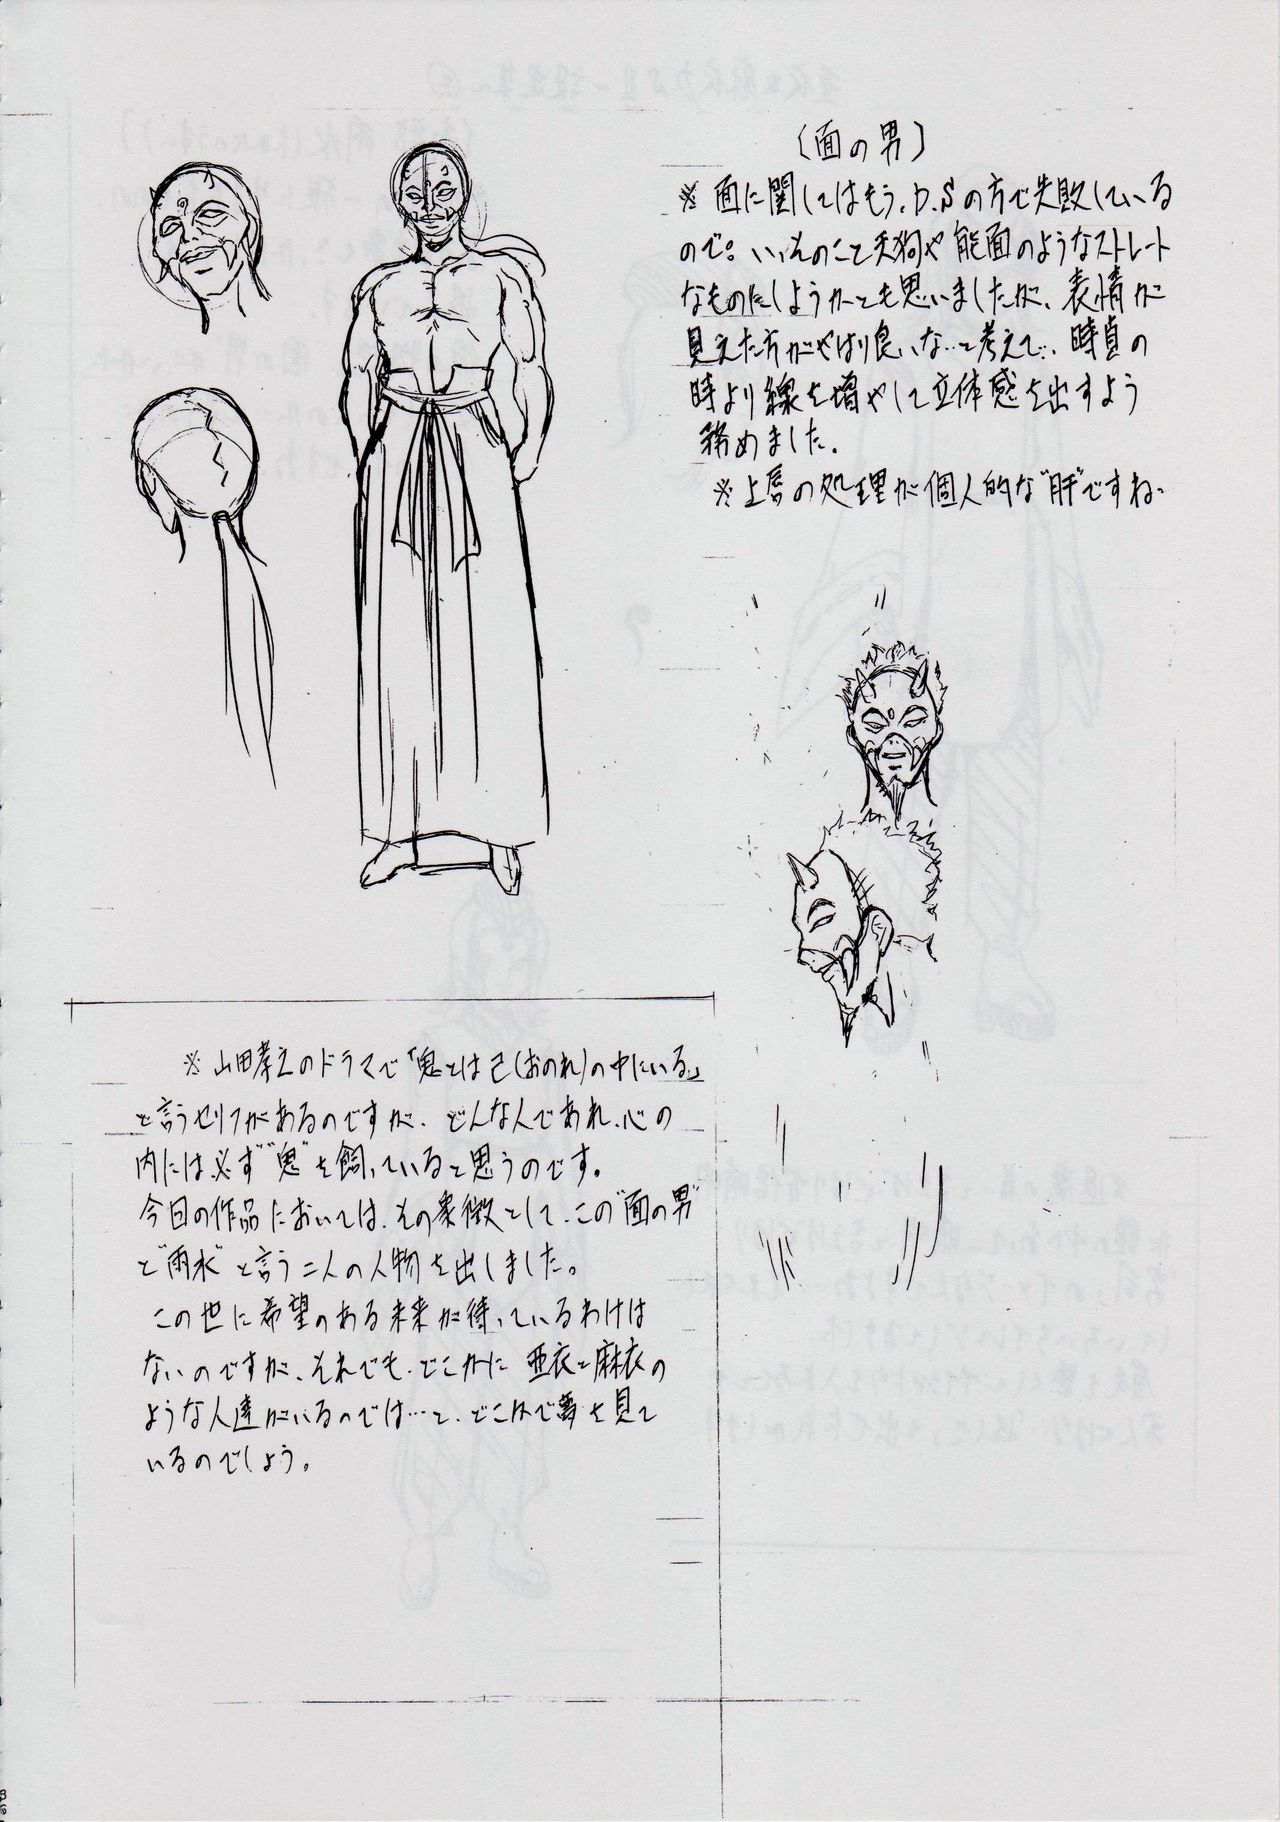 〔面の男〕
※面に関してはもう、D.Sの方で失敗している
ので。いっそのこと天狗や能面のようなストレート
なものにしようかとも思いましたが、表情が
見えた方がやはり良いな…と考えて、時貞の
時より線を増やして立体感を出すよう
務めました。
※上唇の処理が個人的な"肝"ですね。
※山田孝之のドラマで「鬼とは己(おのれ)の中にいる」
と言うセリフがあるのですが、どんな人であれ、心の
内には必ず"鬼"を飼っていると思うのです。
今回の作品においては、その象徴として、この"面の男"
と"雨水"と言う二人の人物を出しました。
この世に希望のある未来が待っているわけは
ないのですが、それでも、どこかに亜衣と麻衣の
ような人達がいるのでは…と、どこかで夢を見て
いるのでしょう。